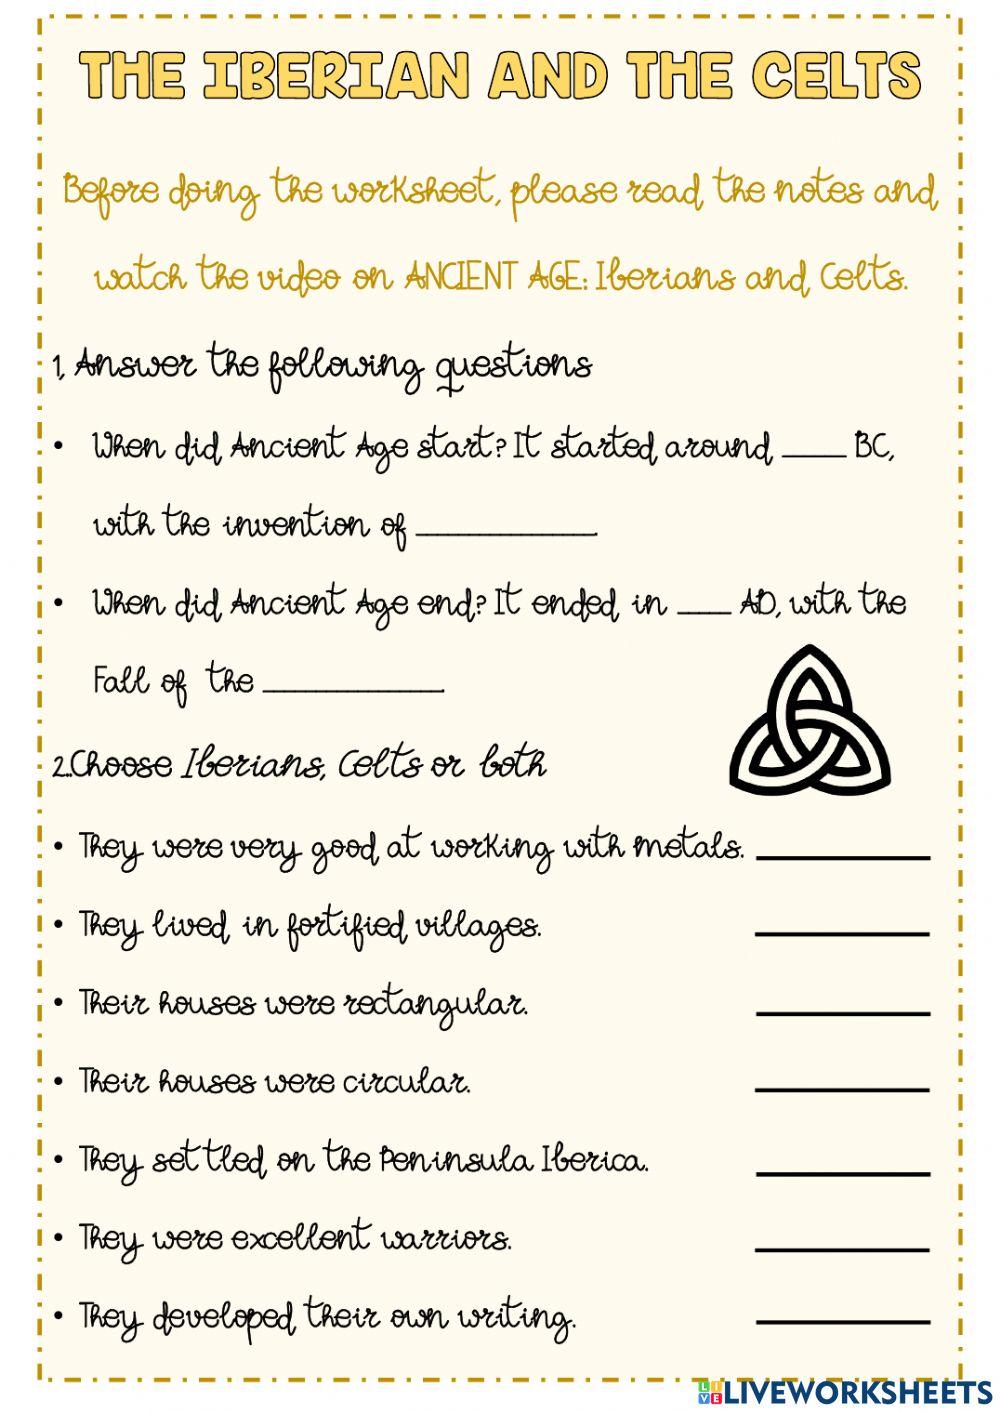 THE IBERIAN AND THE CELTS
Before doing the worksheet, please read the notes and
watch the video on ANCIENT AGE: Iberians and Celts.
1, Answer the following questions
• When did Ancient Age start? It started around ____ BC,
with the invention of ____________
• When did Ancient Age end? It ended in ____ AD, with the
Fall of the ____________.
2.Choose Iberians, Celts or both
• They were very good at working with metals. ____________
• They lived in fortified villages. ____________
• Their houses were rectangular. ____________
• Their houses were circular. ____________
• They settled on the Peninsula Iberica. ____________
• They were excellent warriors. ____________
• They developed their own writing. ____________
LIVE LIVEWORKSHEETS